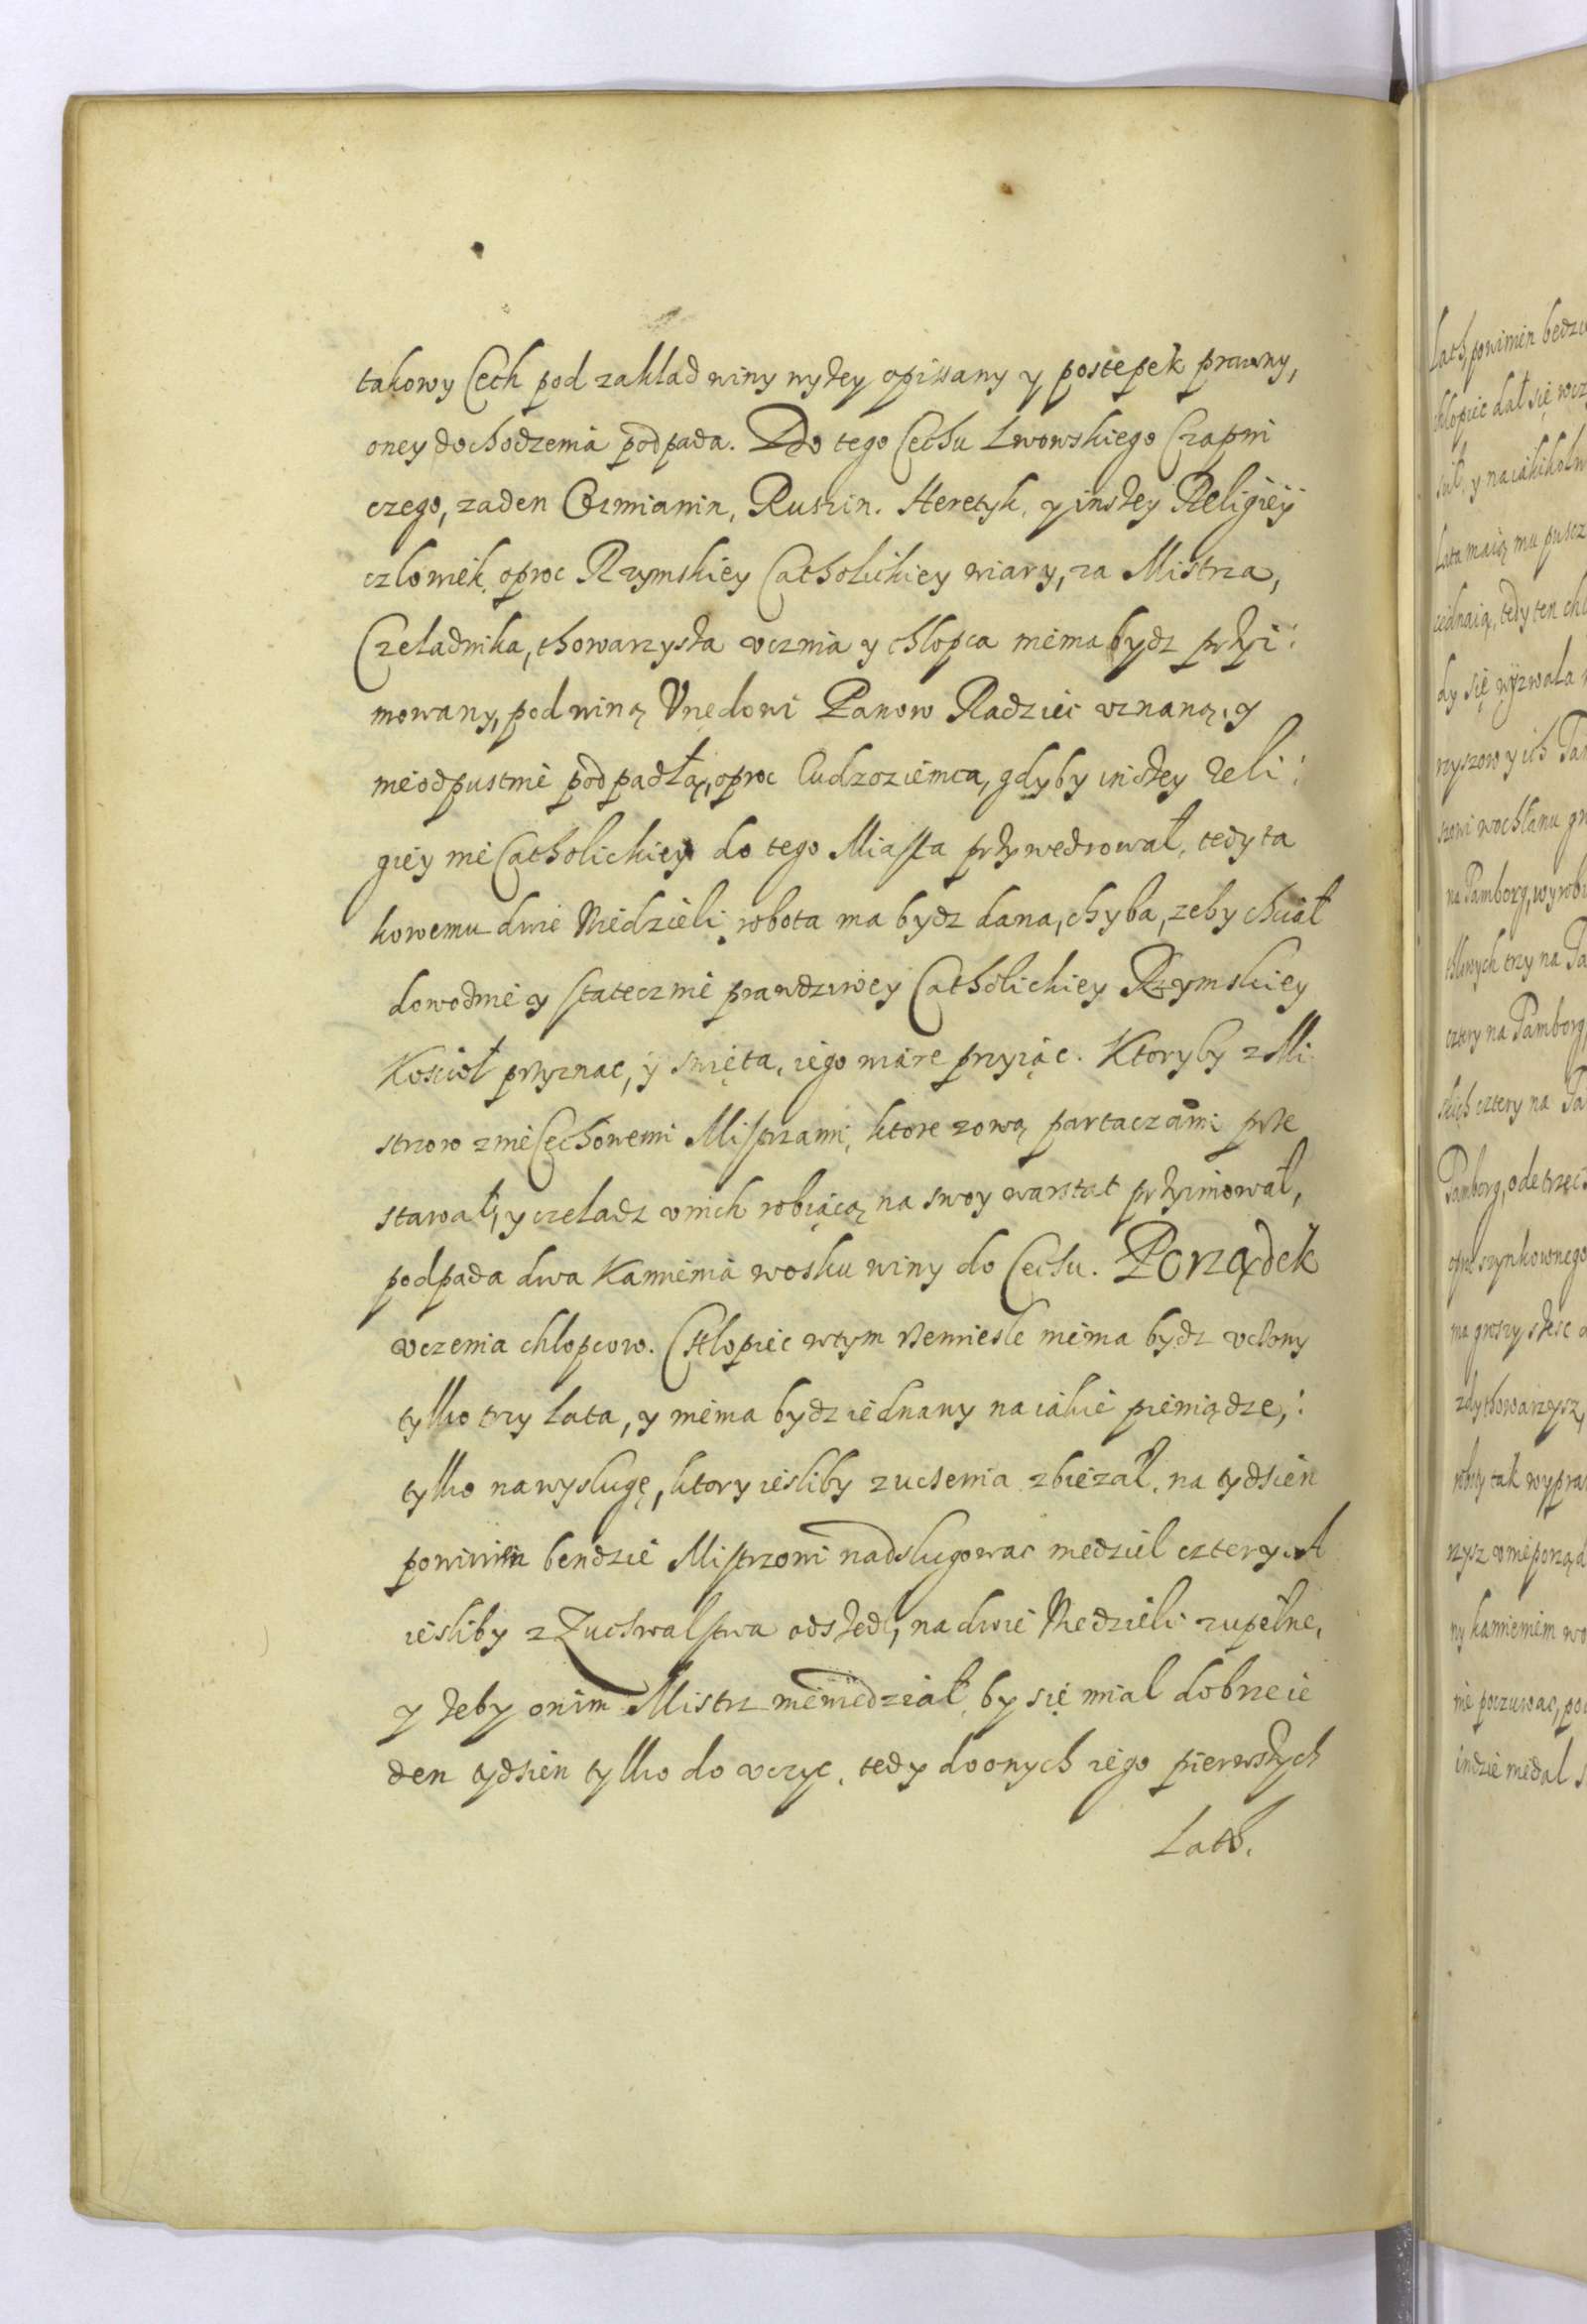 takowy Cech pod zakład winy wyzey opissany y postępek prawny,
oney dochodzenia podpada. Do tego Cechu Lwowskiego Czapni
czego, zaden Ormianin, Ruszin. Heretyk, y inszey Religiey
człowiek, oproc Rzymskiey Catholickiey wiary, za Mistrza,
Czeladnika, thowarzysza vcznia y chłopca niema bydz przyi:
mowany, pod winą Vrzędowi Panow Radziec vznaną, y
nieodpustnie podpadłą, oproc Cudzoziemca, gdyby inszey Reli:
giey nie Catholickiey do tego Miasta przywędrował, tedy ta
kowemu dwie Niedzieli robota ma bydz dana, chyba, zeby chciał
dowodnie y statecznie prawdziwey Catholickiey Rzymskiey
Kościoł przyznac, y swięta, iego wiare przyiąc. Ktoryby z Mi
strzow z nie Cechowemi Mistrzami, ktore zową partaczami prze
stawał, y czeladz v nich robiącą na swoy warstat przyimował,
podpada dwa Kamienia wosku winy do Cechu. Porządek
vczenia chlopcow. Chłopiec w tym Remiesle niema bydz vczony
tylko trzy lata, y niema bydz iednany na iakie pieniądze,:
tylko na wysługę, ktory iesliby z uczenia zbiezał, na tydzien
powinien bendzie Mistrzowi nadsługowac niedziel cztery. A
iesliby z Zuchwalstwa odszedł, na dwie Niedzieli zupełne,
y zeby o nim Mistrz niewiedział, by się miał dobrze ie
den tydzien tylko do vczyc, tedy do onych iego pierwszych
Lath.
Lath, powinien będzie
chłopiec dał się wcz
y na iakikolw
Lata maią mu pusc
iednaią, tedy ten chł
dy się wyzwala
rzyszow y ich
na Tamborg, wyrobi
trzy na Ta
cztery na Tamborg
cztery na Ta
Tamborg, ode trzec
szynkownego
ma groszy szesc
thowarzysz,
roboty tak wypra
rzysz
kamieniem wo
nie poczuwac, po
indzie niedal s